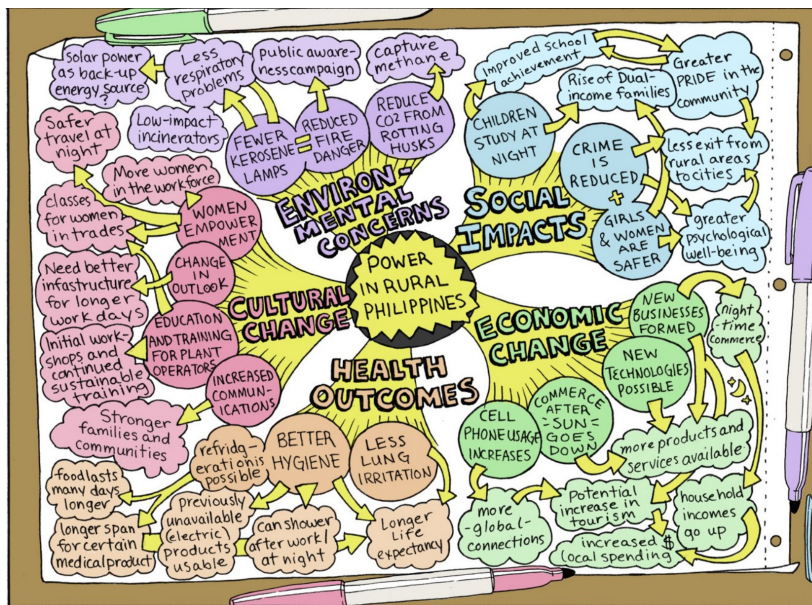 POWER
IN RURAL
PHILIPPINES
ENVIRON-
MENTAL
CONCERNS
FEWER
KEROSENE
LAMPS
=
REDUCED
FIRE
DANGER
REDUCE
CO2 FROM
ROTTING
HUSKS
Solar power
as back-up
energy source
?
Less
respiratory
problems
public aware-
ness campaign
capture
methane
Low-impact
incinerators
SOCIAL
IMPACTS
CHILDREN
STUDY AT
NIGHT
CRIME
IS
REDUCED
+
GIRLS
& WOMEN
ARE
SAFER
Improved school
achievement
Rise of Dual-
income families
Greater
PRIDE in the
community
Less exit from
rural areas
to cities
greater
psychological
well-being
CULTURAL
CHANGE
WOMEN
EMPOWER
MENT
CHANGE
IN
OUTLOOK
EDUCATION
AND TRAINING
FOR PLANT
OPERATORS
INCREASED
COMMUN-
ICATIONS
Safer
travel at
night
More women
in the workforce
classes
for women
in trades
Need better
infastructure
for longer
work days
Initial work-
shops and
continued
sustainable
training
Stronger
families and
communities
ECONOMIC
CHANGE
NEW
BUSINESSES
FORMED
NEW
TECHNOLOGIES
POSSIBLE
COMMERCE
AFTER
-SUN=
GOES
DOWN
CELL
PHONE USAGE
INCREASES
night
time
commerce
more products and
services available
more
-global-
connections
Potential
increase in
tourism
household
incomes
go up
increased $
local spending
HEALTH
OUTCOMES
BETTER
HYGIENE
LESS
LUNG
IRRITATION
refridg-
eration is
possible
food lasts
many days
longer
longer span
for certain
medical product
previously
unavailable
(electric)
products
usable
Can shower
after work/
at night
Longer
Life
expectancy